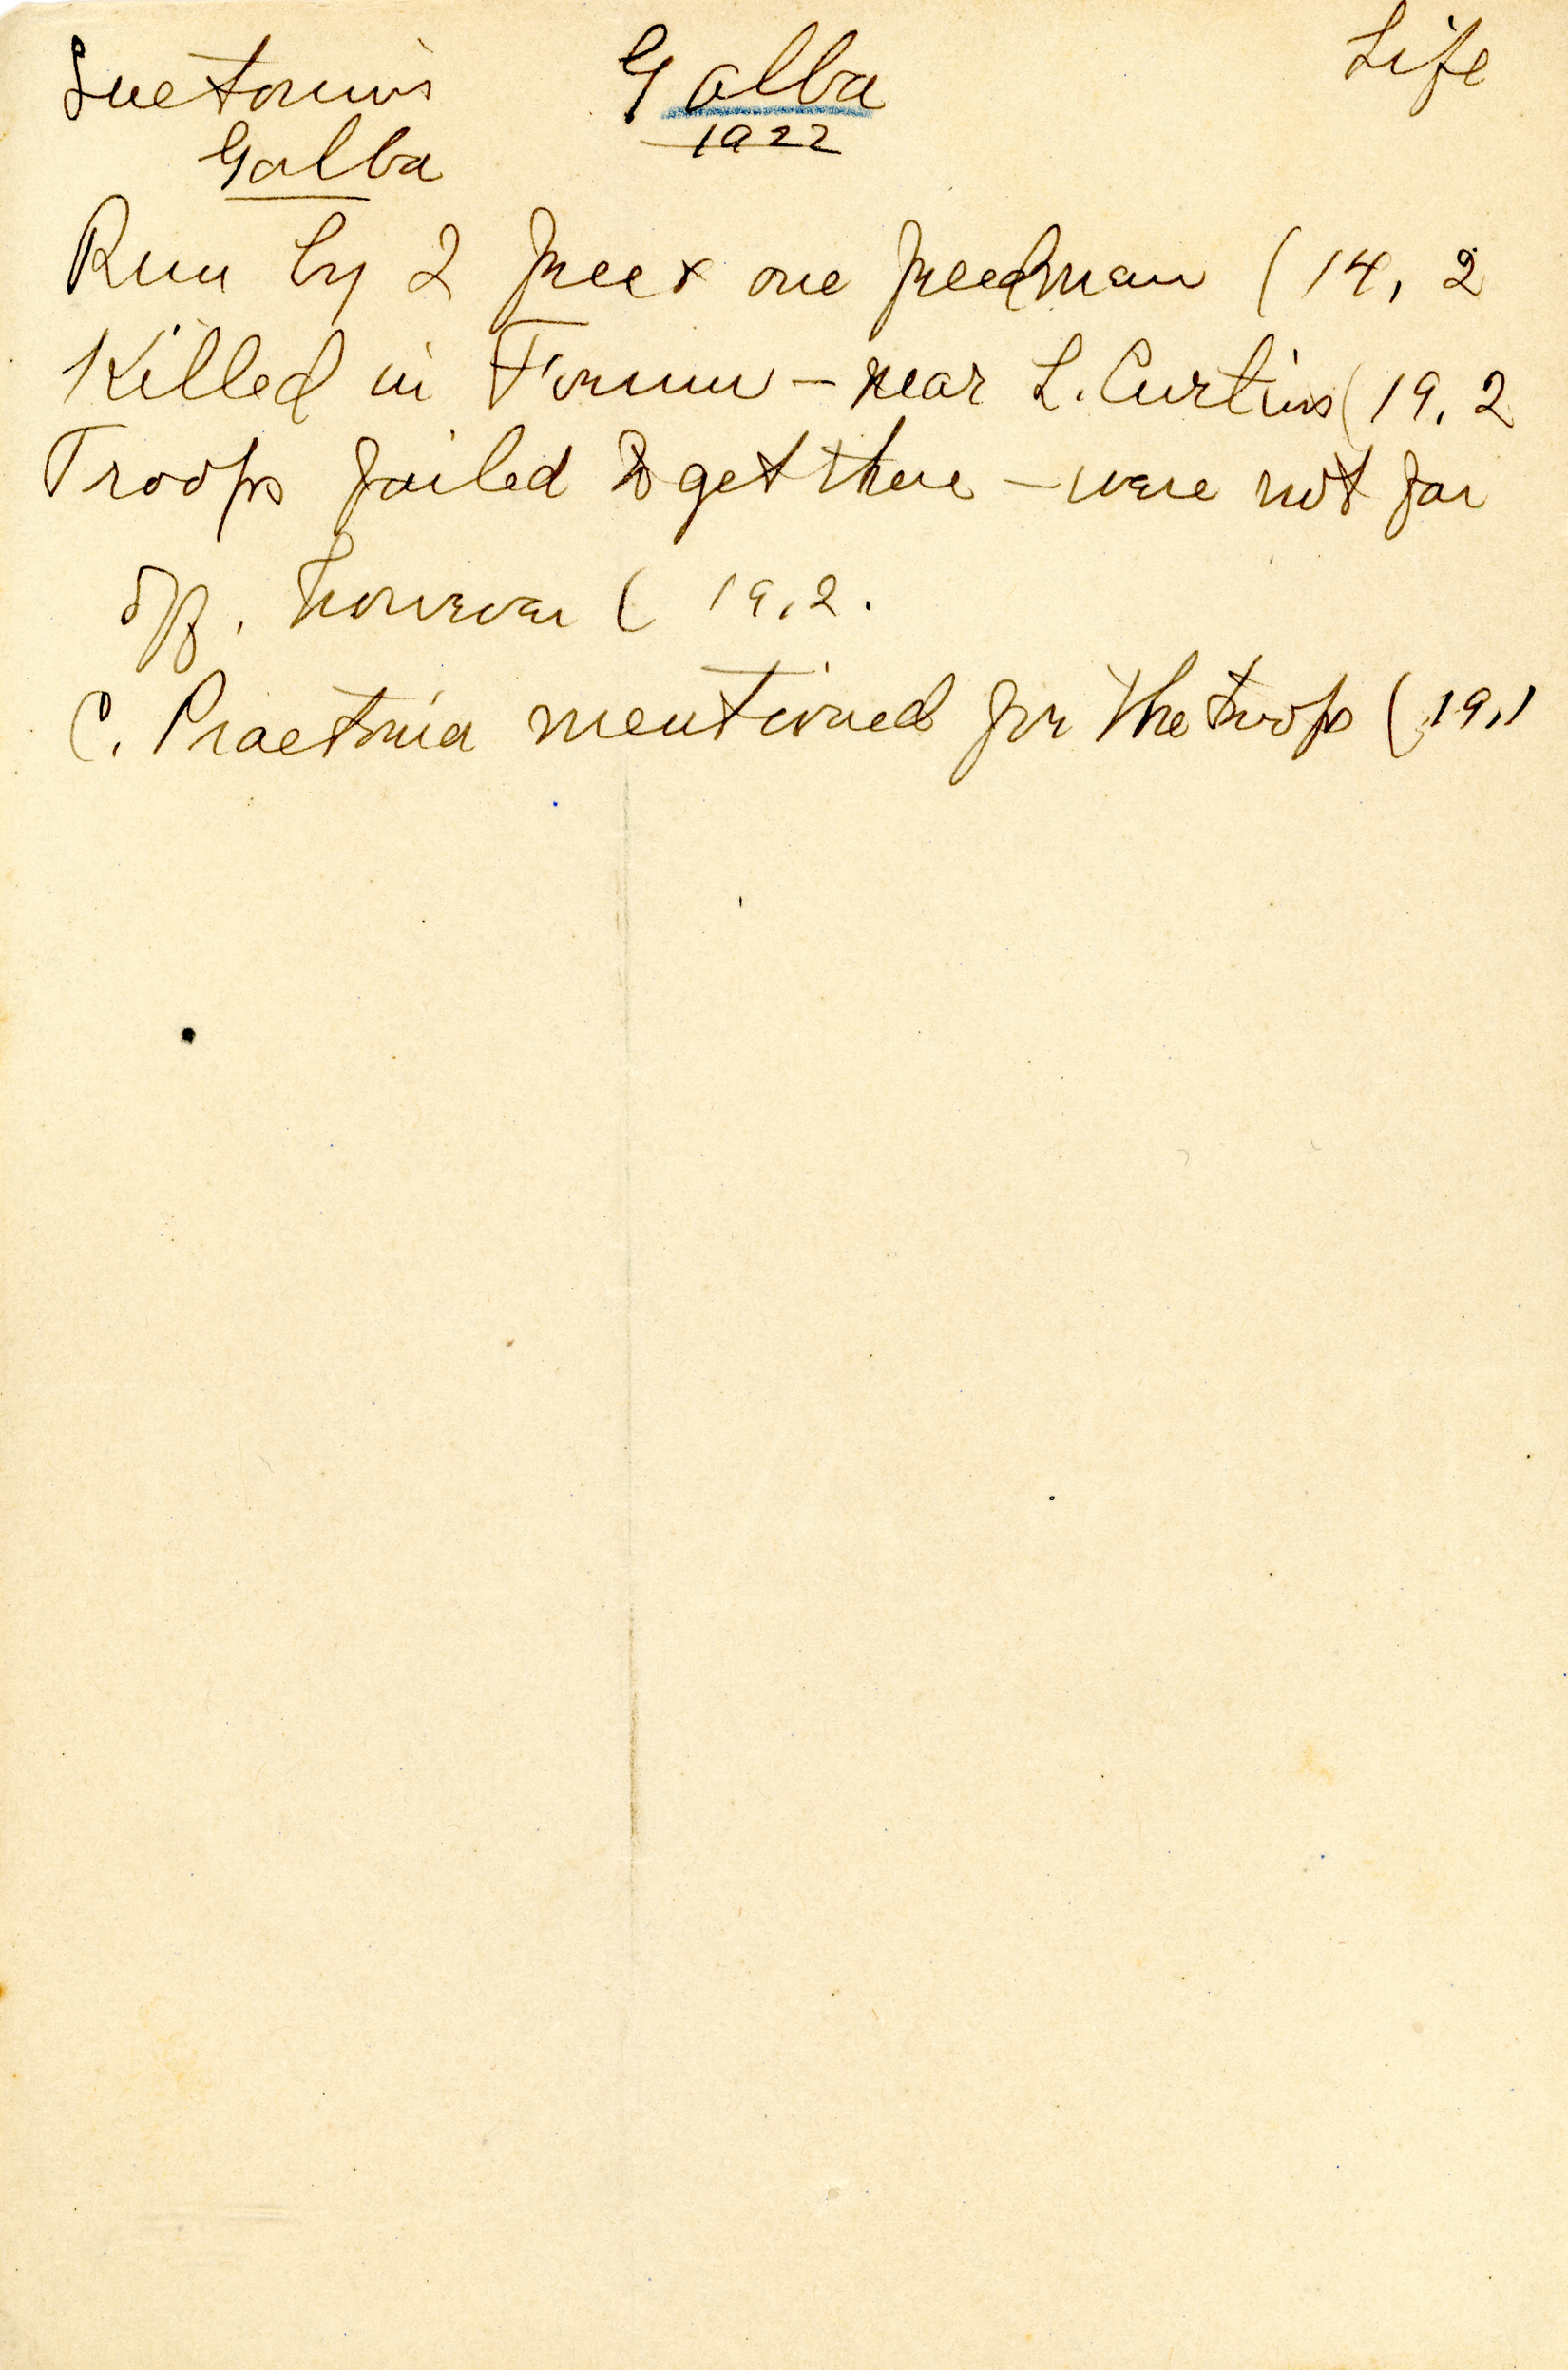 Suetonius Galba Life
Galba 1922
Run by 2 free & one freedman (14, 2
Killed in Forum – near L. Curtius (19, 2
Troops failed to get there – were not far
off. however (19, 2.
C. Praetoria mentioned for the troops (19, 1